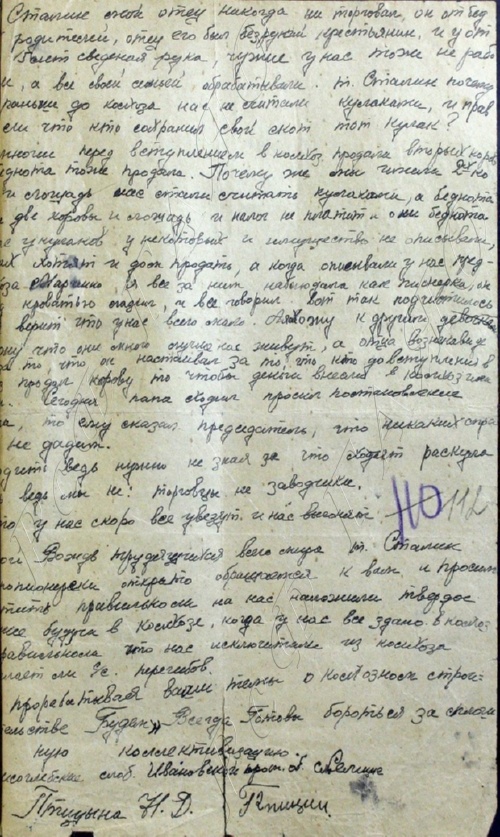 Сталин мой отец никогда не торговал, он от бед
родителей, отец его был безрукий крестьянин, и у от
сведеная рука, чужие у нас тоже не рабо
и, а все своей семьей обрабатывали. т. Сталин почему
раньше до колхоза нас не считали кулаками, и прав
сли что кто сохранил свой скот тот кулак?
многие перед вступлением в колхоз продали вторых коров
еднота тоже продала. Почему же они имели 2х ко
и лошадь нас стали считать кулаками, а беднота
и две коровы и лошадь и налог не платит и они беднота
е у кулаков у некоторых и имущество не описывали,
хотят и дом продать, а когда описывали у нас пред-
за я все за ним наблюдала как пионерка, он
кроватью сладил, и все говорил вот так подчистилось
верит что у нас всего мало. Я хожу к другим
ону что они много лучше нас живут, а отца
за то что он настаивал за то что кто до вступления в
продал корову то чтобы деньги внесли в колхоз и на
Сегодня папа сходил просил постановление
а, то ему сказал председатель, что никаких спра
не дадим.
одить ведь нужно не зная за что сходит
ведь мы не торговцы не заводчики.
то у нас скоро все увезут и нас выгонят
110 112
рогой Вождь трудящихся всего мира т. Сталин
попионерски открыто обращается к вам, и просим
тить правильно ли на нас наложили твердое
же будучи в колхозе, когда у нас все здано в колхоз
равильно ли что нас исключили из колхоза
мает ли ус перегибов.
прорабатывая ваши темы о колхозном строи=
тельстве Будем» Всегда Готовы бороться за сплош
ную коллективизацию
слоб. Ивановской
Птицына Н. Д. Птицин